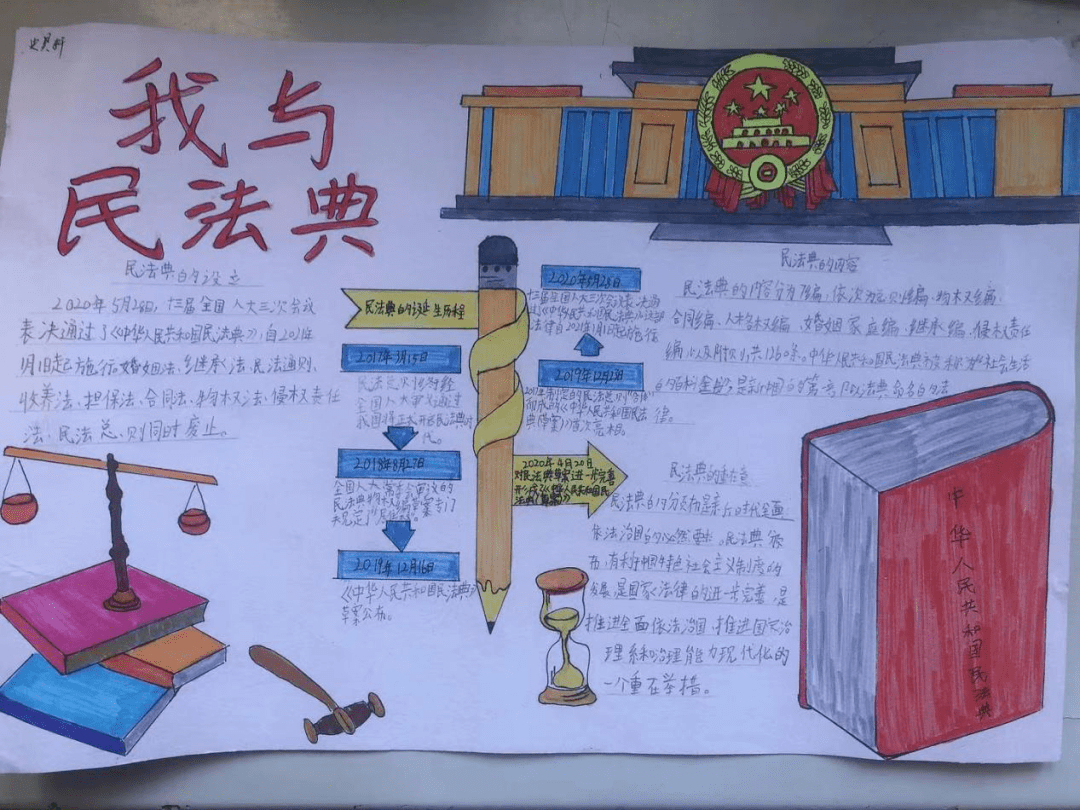 我与
民法典
民法典的设立
2020年5月28日,十三届全国人大三次会议
表决通过了《中华人民共和国民法典》,自2021年
1月1日起施行。婚姻法、继承法、民法通则、
收养法、担保法、合同法、物权法、侵权责任
法、民法总则同时废止。
民法典的诞生历程
2017年3月15日
全国人大审议通过
我国将正式开启民法典时
代。
2018年8月27日
全国人大常委会审议的
民法典
2019年12月16日
《中华人民共和国民法典》
草案公布。
2020年5月28日
十三届全国人大三次会议表决通
过《中华人民共和国民法典》
法律自2021年1月1日起施行
2019年12月23日
2017年制定的民法总则"合体"
而成的《中华人民共和国民法
典(草案)》首次亮相
2020年4月20日
对民法典草案进一步完善
形成了《中华人民共和国民
法典(草案)》
民法典的内容
民法典的内容分为7编,依次为总则编、物权编、
合同编、人格权编、婚姻家庭编、继承编、侵权责任
编,以及附则,共1260条。中华人民共和国民法典被称为"社会生活
的百科全书",是新中国的第一部以法典命名的法
律。
民法典的
民法典的 颁布是新时代全面
依法治国的必然要求。民法典颁
布,有利于中国特色社会主义制度的
发展,是国家法律的进一步完善,是
推进全面依法治国、推进国家治
理体系和治理能力现代化的
一个重在举措。
中华人民共和国民法典